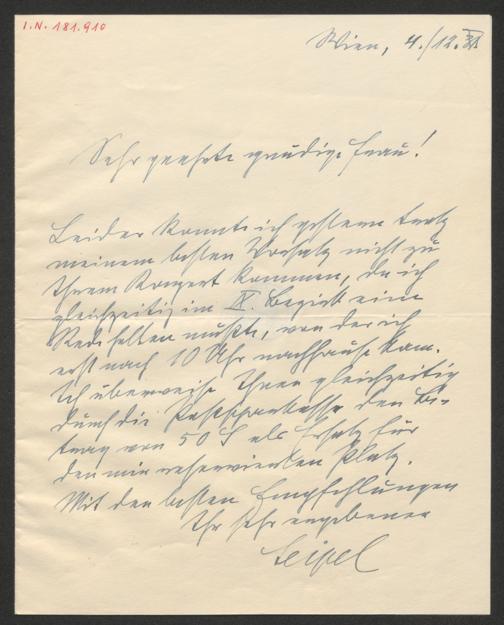 I.N. 181.910
Wien, 4./12.31
Sehr geehrte gnädige Frau!
Leider konnte ich gestern trotz
meinem besten Vorsatz nicht zu
Ihrem Konzert kommen, da ich
gleichzeitig im IV. Bezirk eine
Rede halten mußte, von der ich
erst nach 10 Uhr nachhause kam.
Ich überweise Ihnen gleichzeitig
durch die Postsparkasse den Be-
trag von 50 S als Ersatz für
den mir reservierten Platz.
Mit den besten Empfehlungen
Ihr sehr ergebener
Seipel